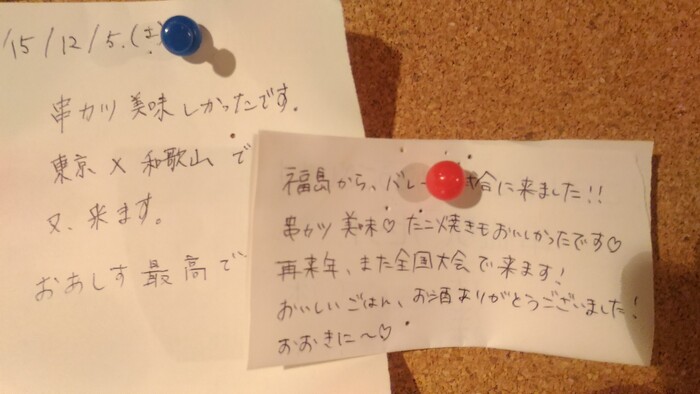 /15/12/5.(土)
串カツ美味しかったです。
東京×和歌山で
又、来ます。
おおしす最高で
福島から、バレー 試合に来ました!!
串カツ美味♡たこ焼きもおいしかったです♡
再来年、また全国大会で来ます!
おいしいごはん、お酒ありがとうございました!
おおきに〜♡